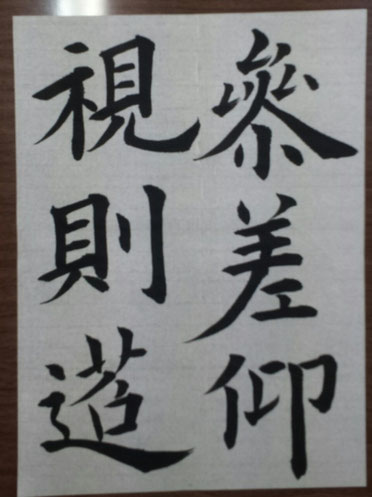 參差仰
視則迢